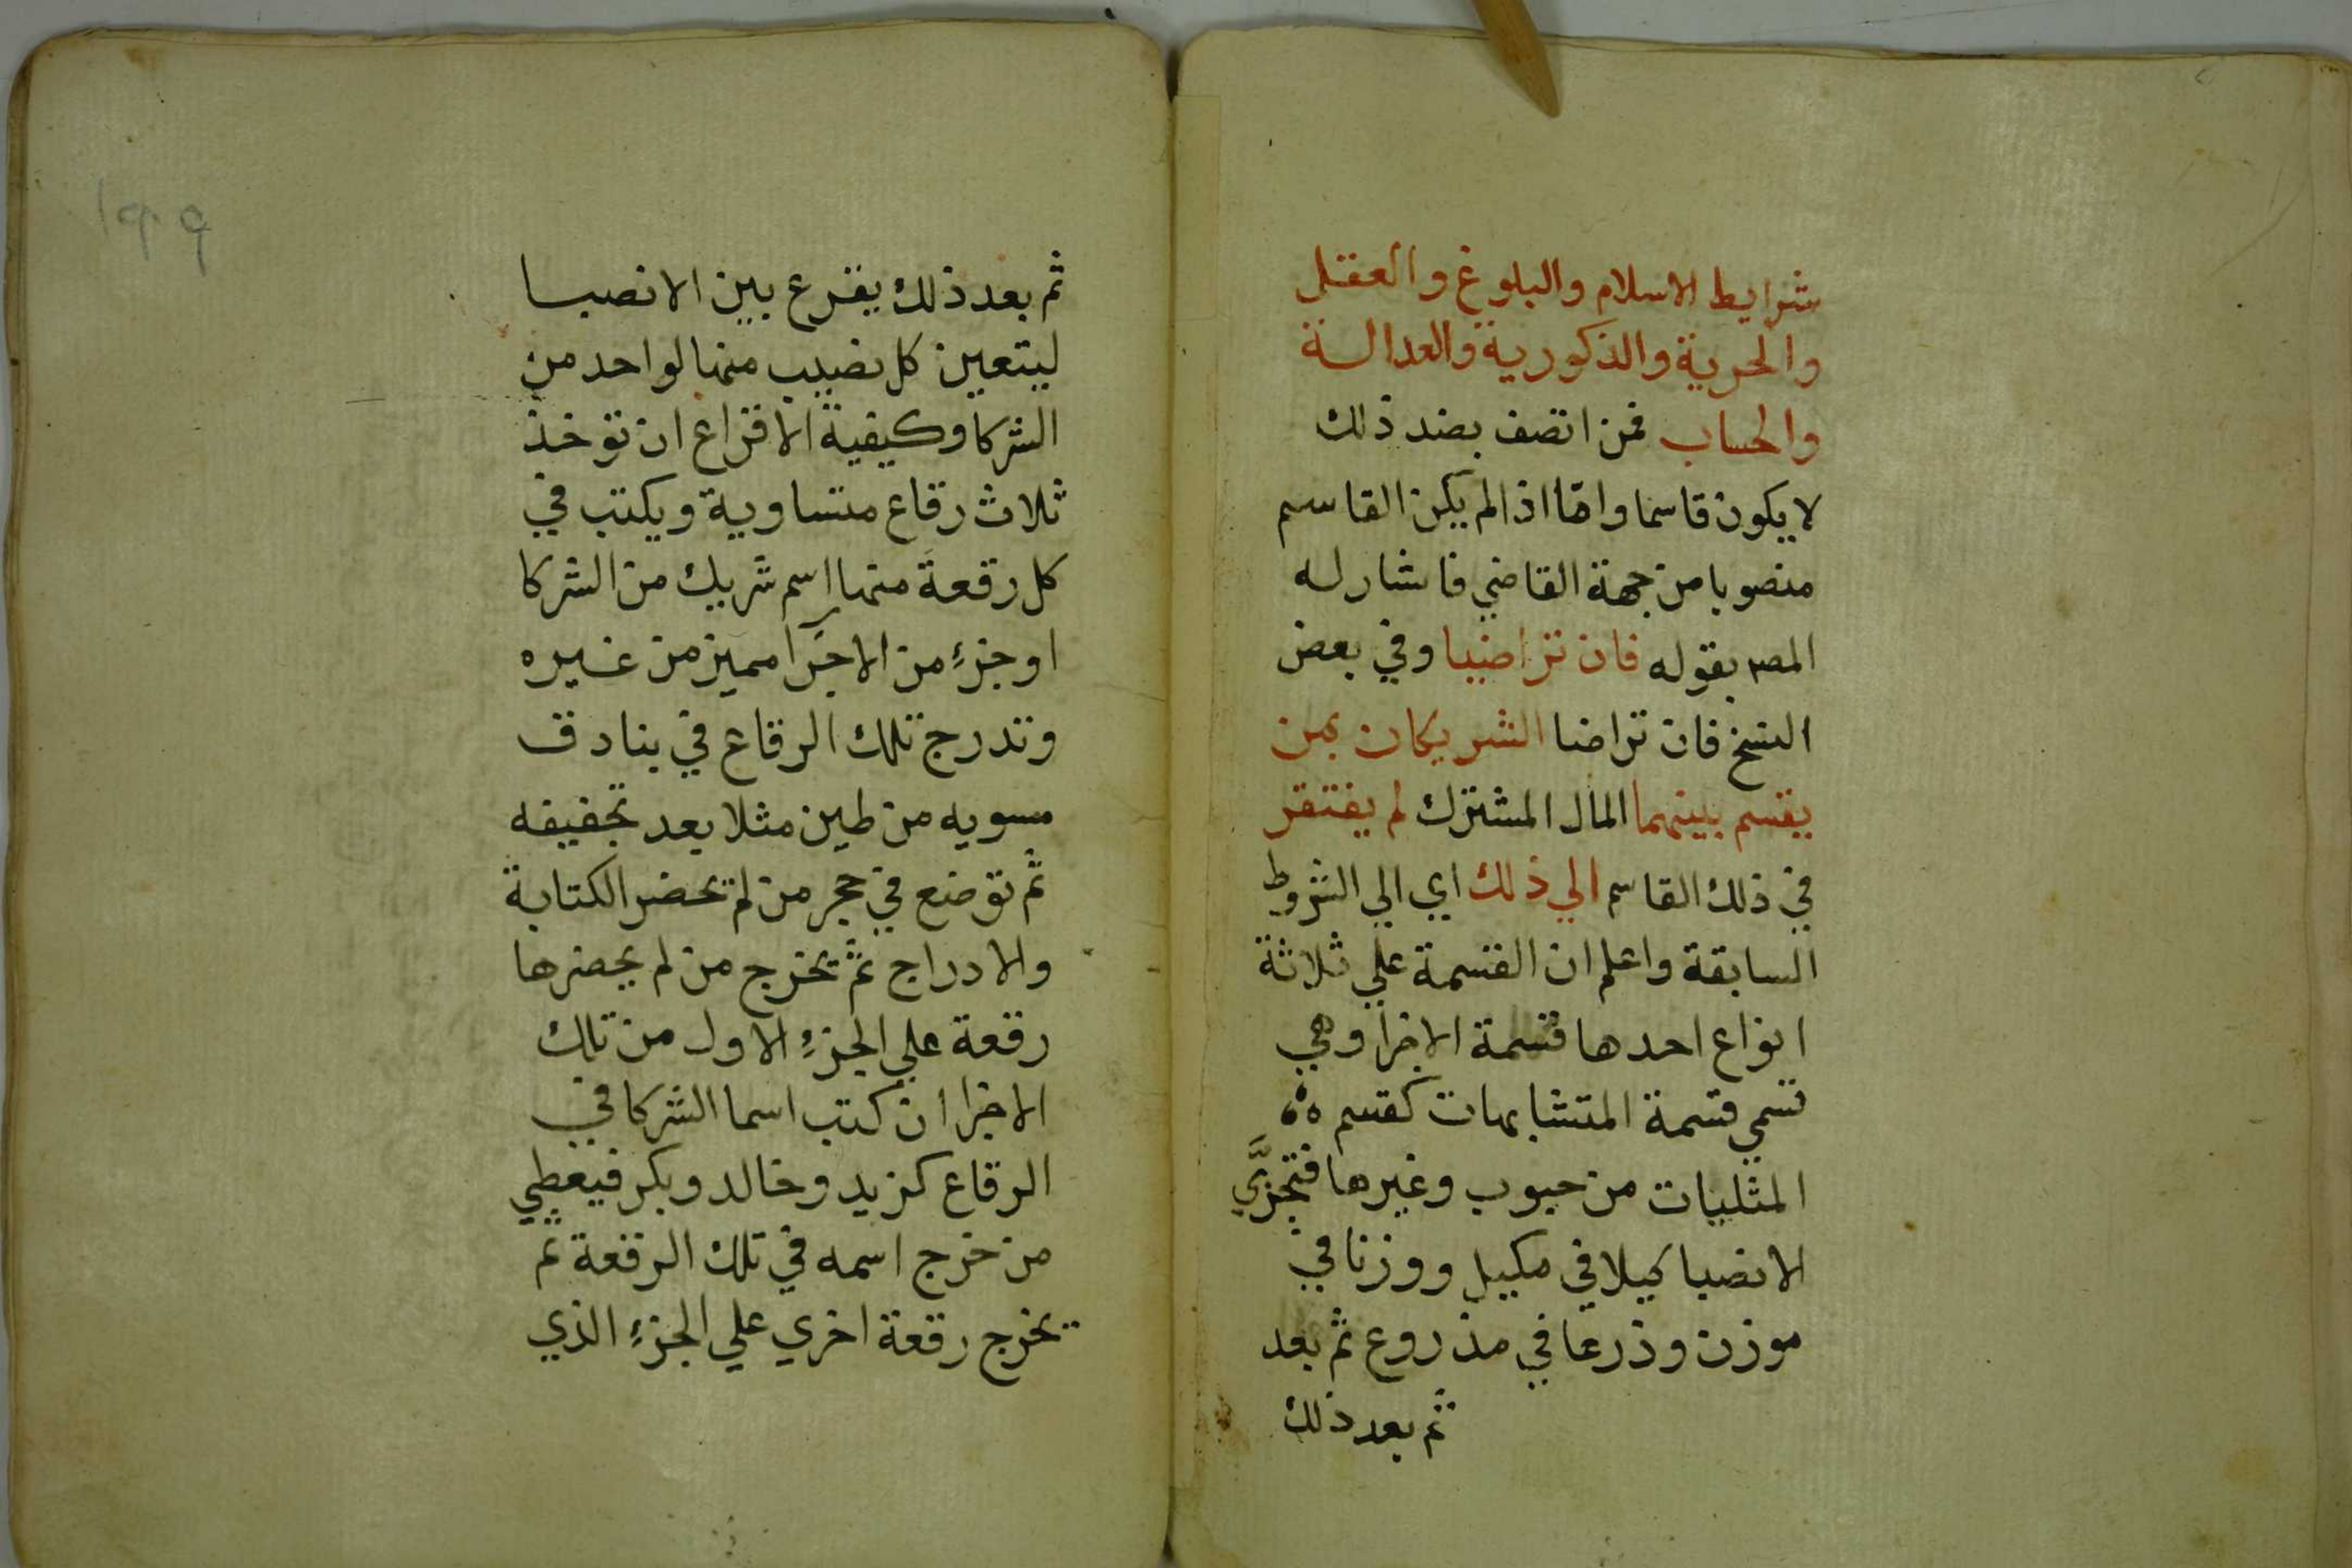 شرايط الاسلام والبلوغ والعقل
والحرية والذكورية والعدالة
والحساب فمن اتصف بضد ذلك
لا يكون قاسما واما اذا لم يكن القاسم
منصوبا من جهة القاضي فاشار له
المصر بقوله فان تراضيا وفي بعض
النسخ فان تراضا الشريكان بمن
يقسم بينهما المال المشترك لم يفتقر
في ذلك القاسم الي ذلك اي الي الشروط
السابقة واعلم ان القسمة علي ثلاثة
انواع احدها قسمة الاجزا وهي
تسمي قسمة المتشابهات كقسم
المثليات من حبوب وغيرها فتجزَّي
الانصبا كيلا في مكيل ووزنا في
موزن وذرعا في مذروع ثم بعد
ثم بعد ذلك
١٩٩
ثم بعد ذلك يقرع بين الانصبا
ليتعين كل نصيب منها لواحد من
الشركا وكيفية الاقراع ان توخذ
ثلاث رقاع متساوية ويكتب في
كل رقعة منها اسم شريك من الشركا
او جزءٍ من الاجزا مميز من غيره
وتدرج تلك الرقاع في بنادق
مسويه من طين مثلا بعد تجفيفه
ثم توضع في حجر من لم يحضر الكتابة
والادراج ثم يخرج من لم يحضرها
رقعة علي الجزءِ الاول من تلك
الاجزا ان كتب اسما الشركا في
الرقاع كزيد وخالد وبكر فيعطي
من خرج اسمه في تلك الرقعة ثم
يخرج رقعة اخري علي الجزءِ الذي